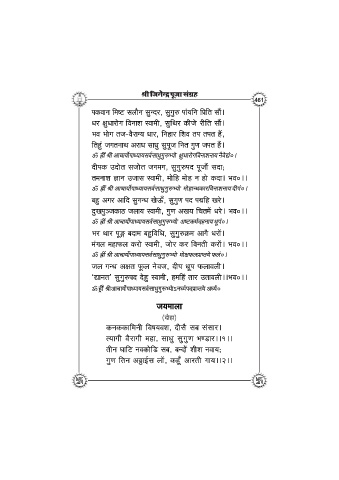 श्री जिनेन्द्र पूजा संग्रह
461
पकवान मिष्ट सलौन सुन्दर, सुगुरु पांयनि प्रिति सौं।
धर क्षुधारोग विनाश स्वामी, सुथिर कीजे रीति सौं।
भव भोग तज-वैराग्य धार, निहार शिव तप तपत हैं,
तिहुं जगतनाथ अराध साधु सुपूज नित गुण जपत हैं।
ॐ ह्रीं श्री आचार्योपाध्यायसर्वसाधुगुरुभ्यो क्षुधारोगविनाशनाय नैवेद्यं०।
दीपक उदोत सजोत जगमग, सुगुरुपद पूजौं सदा;
तमनाश ज्ञान उजास स्वामी, मोहि मोह न हो कदा। भव०।।
ॐ ह्रीं श्री आचार्योपाध्यायसर्वसाधुगुरुभ्यो मोहान्धकारविनाशनाय दीपं०।
बहु अगर आदि सुगन्ध खेऊँ, सुगुण पद पद्महि खरे।
दुखपुञ्जकाठ जलाय स्वामी, गुण अखय चितमें धरे। भव०।।
ॐ ह्रीं श्री आचार्योपाध्यायसर्वसाधुगुरुभ्यो अष्टकर्मदहनाय धूपं०।
भर थार पूङ्ग बदाम बहुविधि, सुगुरुक्रम आगै धरों।
मंगल महाफल करो स्वामी, जोर कर विनती करों। भव०।।
ॐ ह्रीं श्री आचार्योपाध्यायसर्वसाधुगुरुभ्यो मोक्षफलप्राप्तये फलं०।
जल गन्ध अक्षत फूल नेवज, दीप धूप फलावली।
'द्यानत' सुगुरुपद देहु स्वामी, हमहिं तार उतावली।।भव०।।
ॐ ह्रीं श्री आचार्योपाध्यायसर्वसाधुगुरुभ्योऽनर्घ्यपदप्राप्तये अर्घ्यं०
जयमाला
(दोहा)
कनककामिनी विषयवश, दीसै सब संसार।
त्यागी वैरागी महा, साधु सुगुण भण्डार।।१।।
तीन घाटि नवकोडि सब, बन्दों शीश नवाय;
गुण तिन अट्ठाईस लों, कहूँ आरती गाय।।२।।